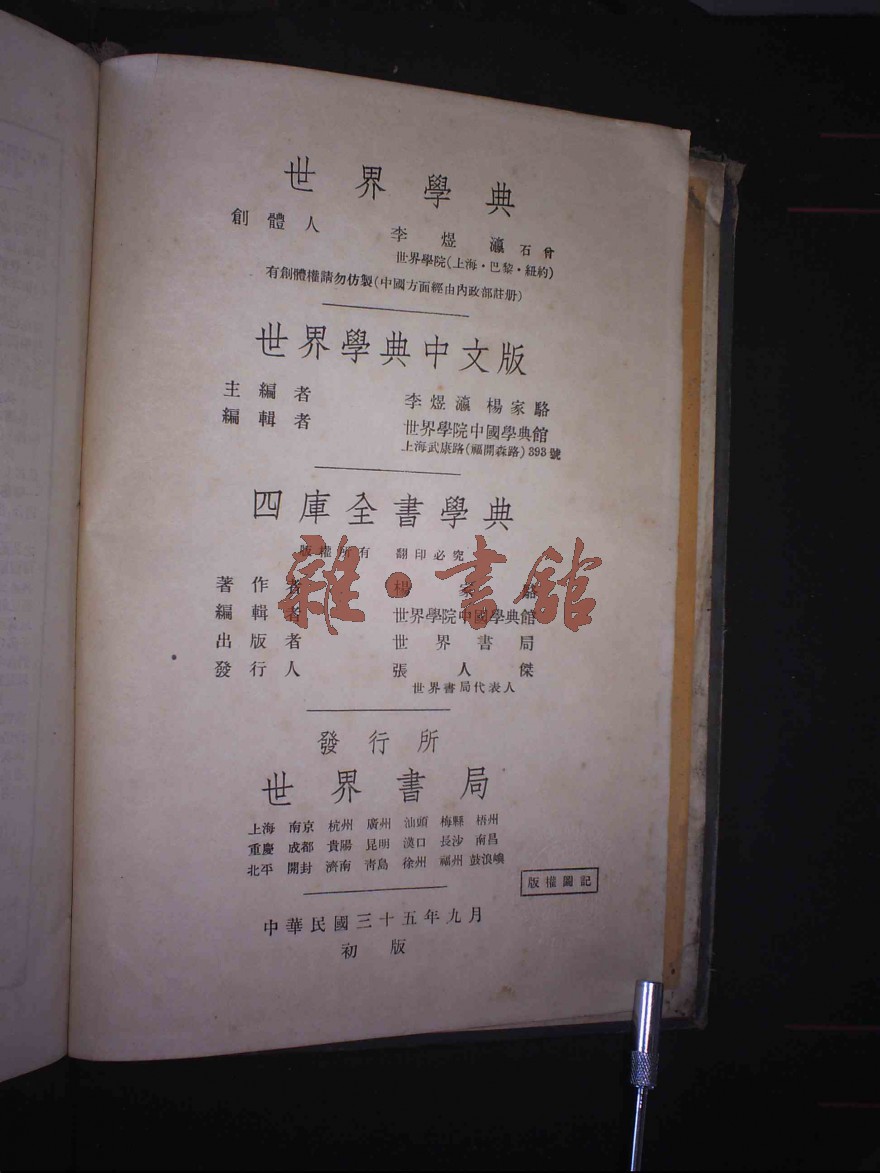 世界學典
創體人 李煜瀛石曾
世界學院(上海·巴黎·紐約)
有創體權請勿仿製(中國方面經由內政部註册)
世界學典中文版
主編者 李煜瀛 楊家駱
編輯者 世界學院中國學典館
上海武康路(福開森路)393號
四庫全書學典
版權所有 翻印必究
著作者 楊家駱
編輯者 世界學院中國學典館
出版者 世界書局
發行人 張人傑
世界書局代表人
雜·書館
發行所
世界書局
上海 南京 杭州 廣州 汕頭 梅縣 梧州
重慶 成都 貴陽 昆明 漢口 長沙 南昌
北平 開封 濟南 靑島 徐州 福州 鼓浪嶼
版權圖記
中華民國三十五年九月
初版